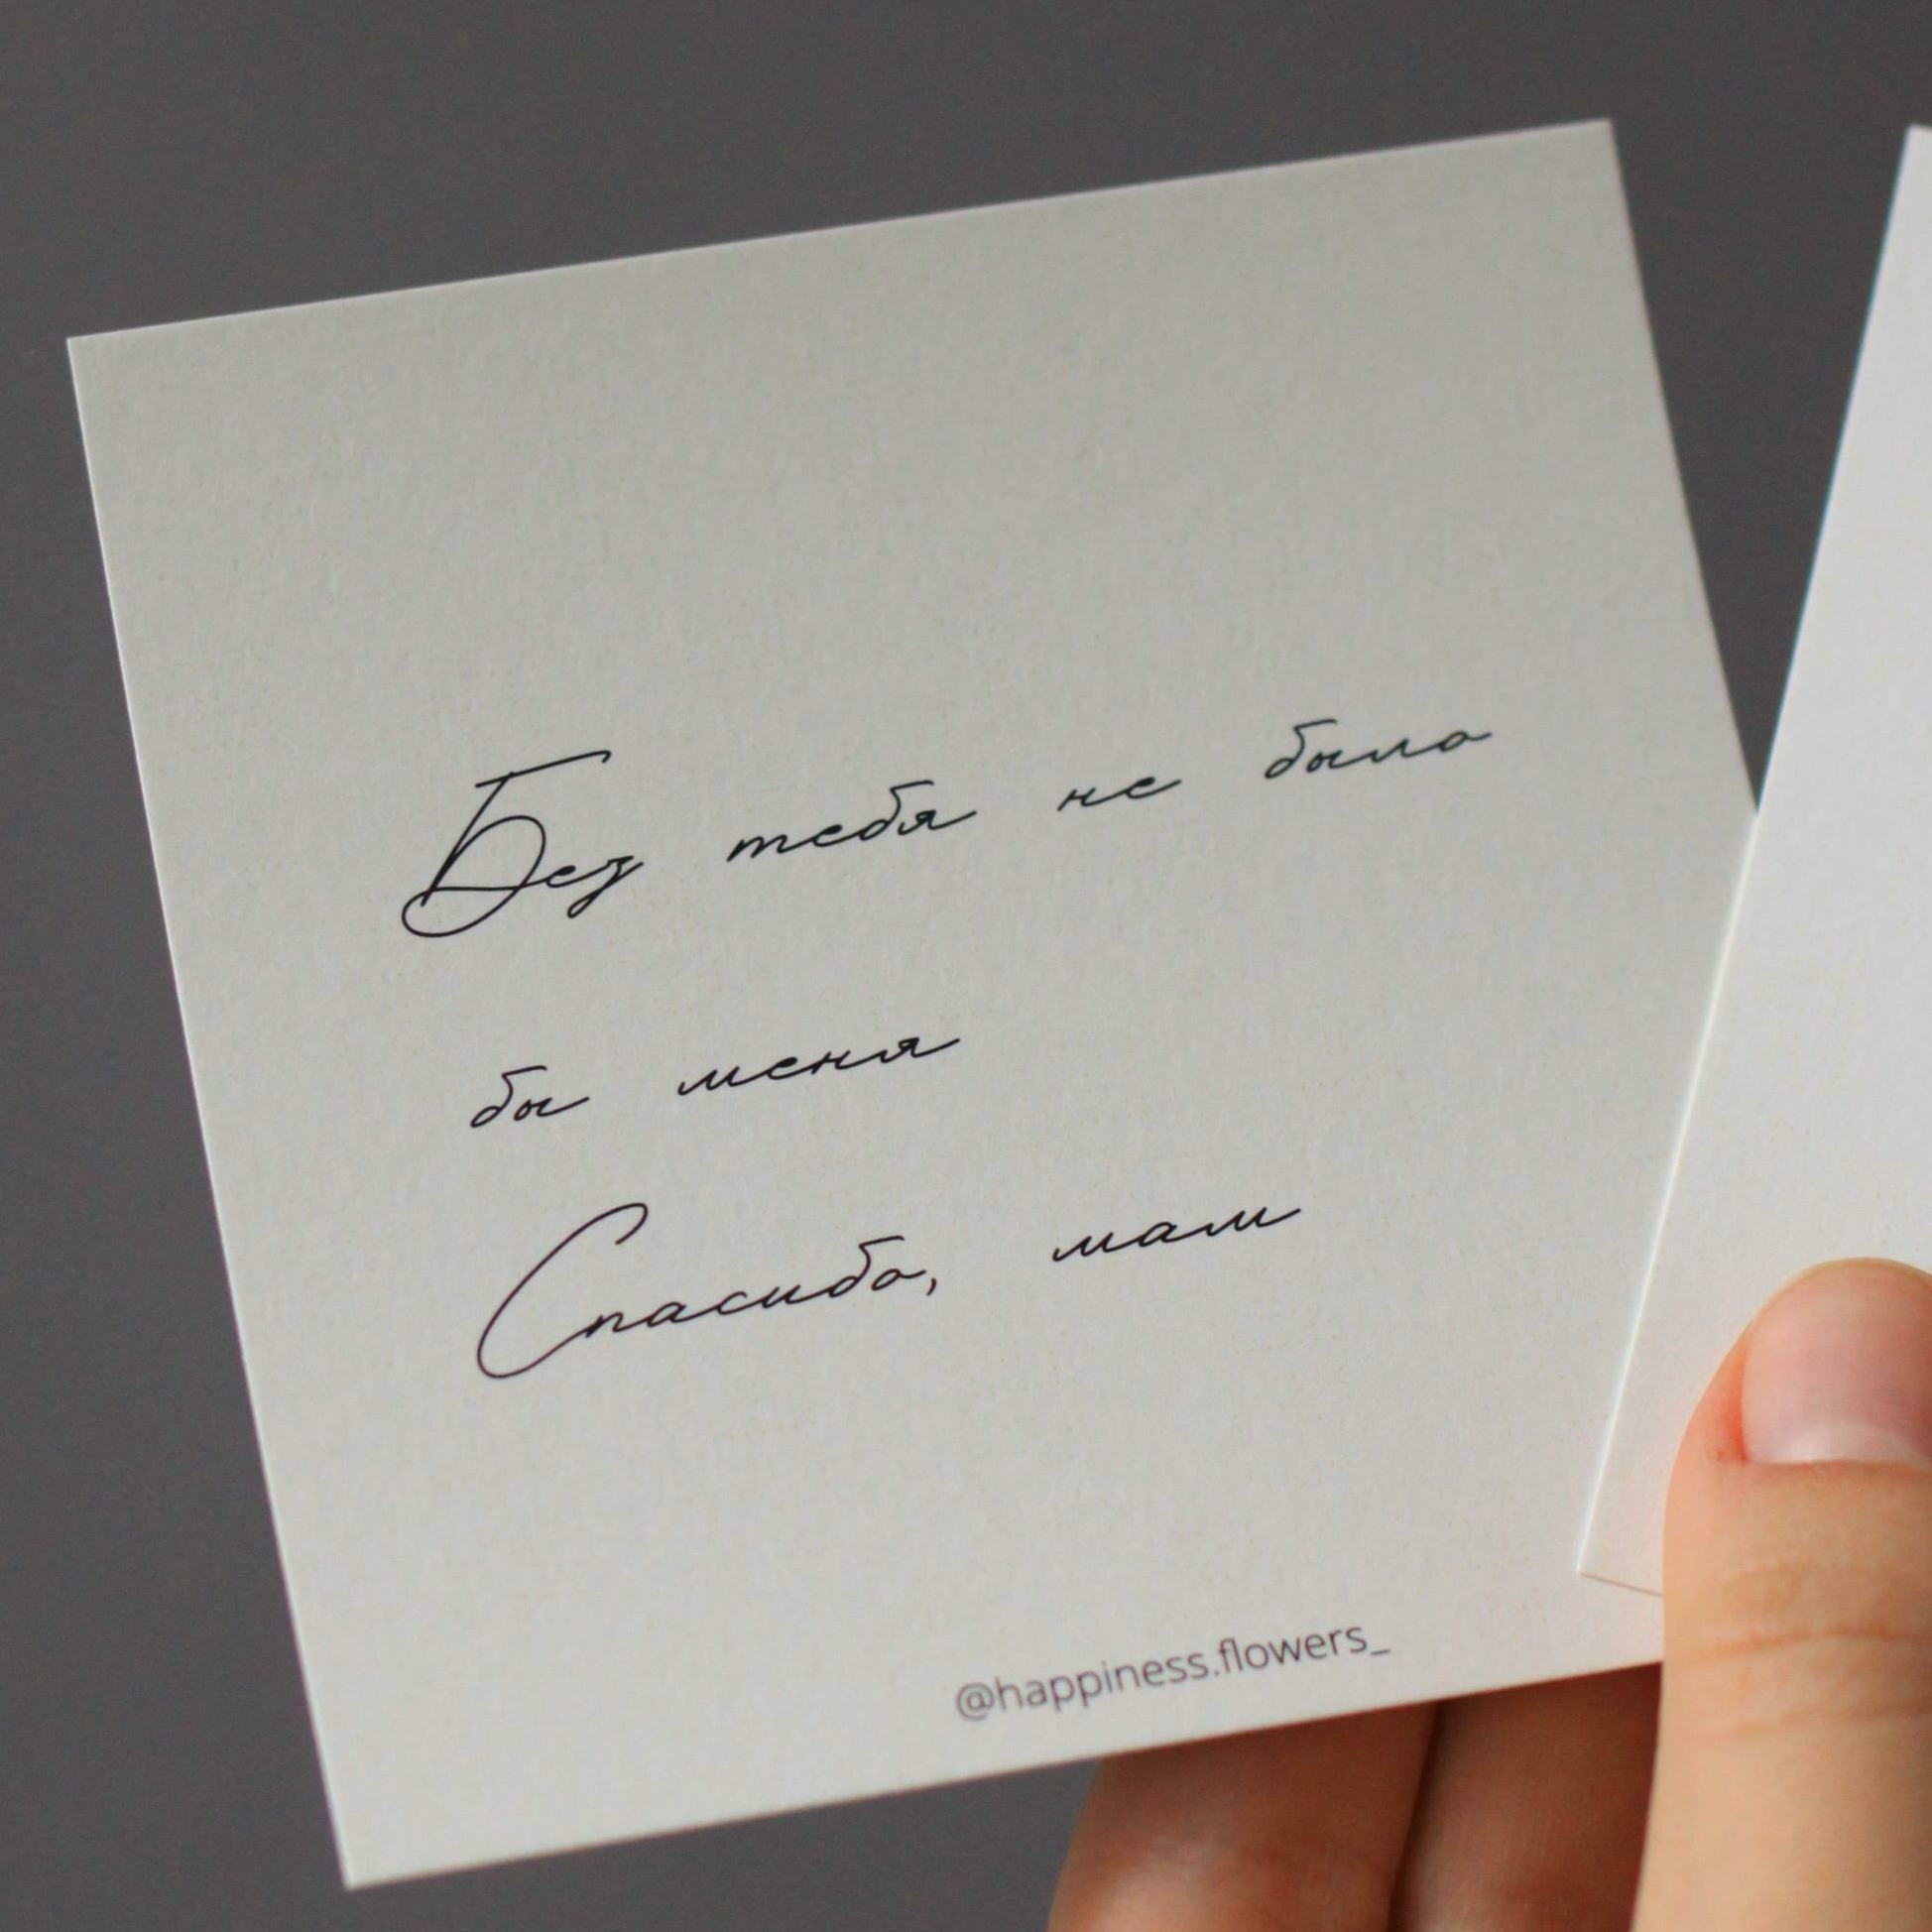 Без тебя не было
бы меня
Спасибо, мам
@happiness.flowers_